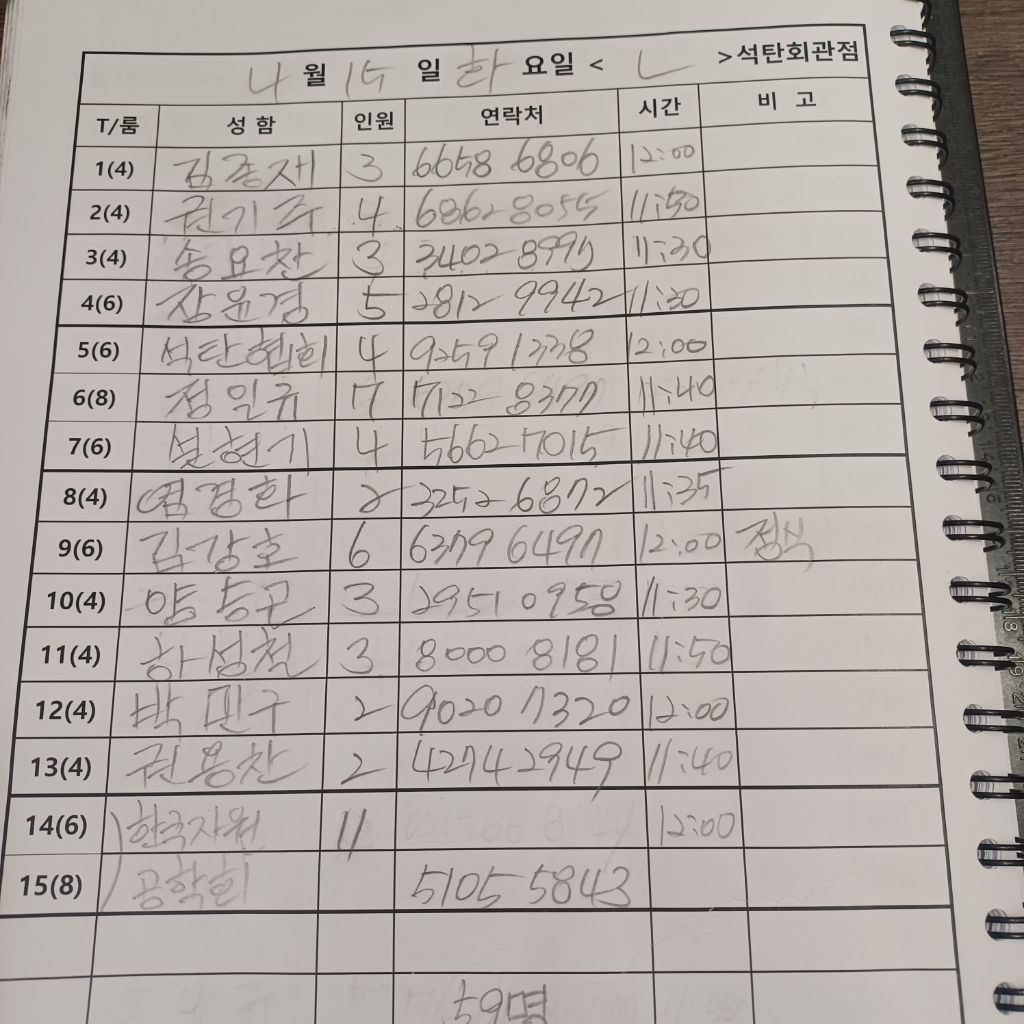 4 월 15 일 화 요일 < ㄴ >석탄회관점
T/룸 성 함 인원 연락처 시간 비 고
1(4) 김종재 3 6658 6806 12:00
2(4) 권기주 4 6862 8055 11:50
3(4) 송요찬 3 3402 8997 11:30
4(6) 장윤경 5 2812 9942 11:30
5(6) 석탄협회 4 9259 1338 12:00
6(8) 정일규 7 7122 8377 11:40
7(6) 설현기 4 5662 7015 11:40
8(4) 염경화 2 3252 6872 11:35
9(6) 김강호 6 6379 6497 12:00 정식
10(4) 3 2951 0958 11:30
11(4) 하성철 3 8000 8181 11:50
12(4) 박민구 2 9020 7320 12:00
13(4) 권용찬 2 4274 2949 11:40
14(6) 한국자원 11 12:00
15(8) 공학회 5105 5843
59명